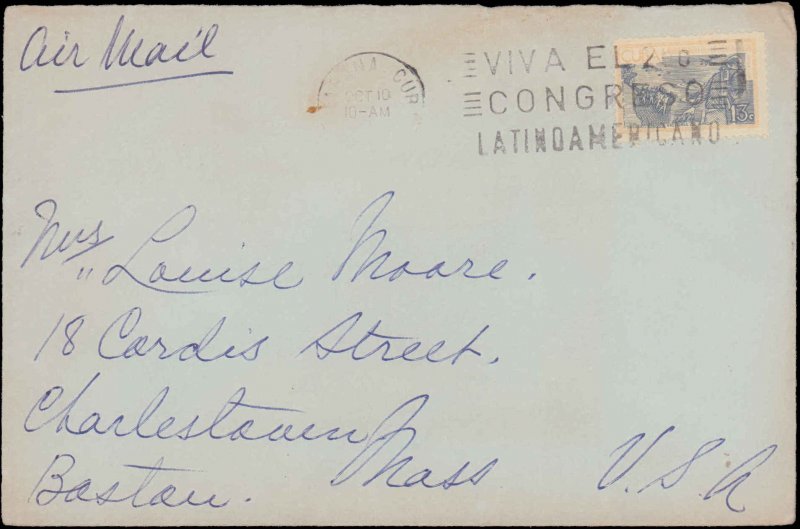 Air Mail
HABANA CUBA
OCT 10
10-AM
VIVA EL 2o
CONGRESO
LATINOAMERICANO
13c
Mrs
" Louise Moore.
18 Cordis Street.
Charlestown Mass
Boston. U.S.A